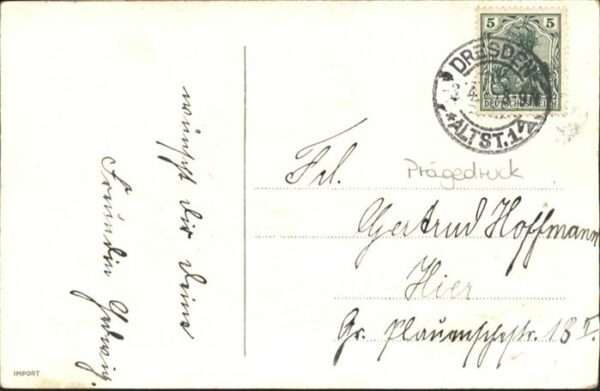 wünscht Dir Deine
Freundin Hedwig.
5 5
DEUTSCHES REICH
DRESDEN
ALTST. 1
Prägedruck
Frl.
Gertrud Hoffmann
Hier
Gr. Plauenschestr. 18 II.
IMPORT